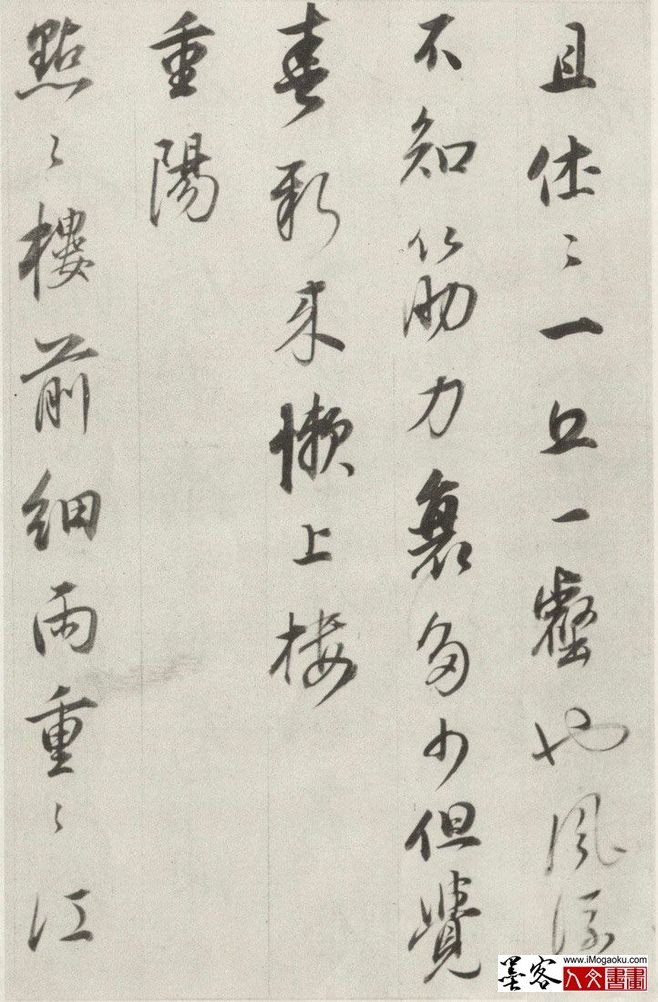 且休〻一丘一壑也風流
不知筋力衰多少但覺
春新來懶上楼
重陽
點〻樓前細雨重〻江
www.iMogaoku.com
墨客
人文書畫